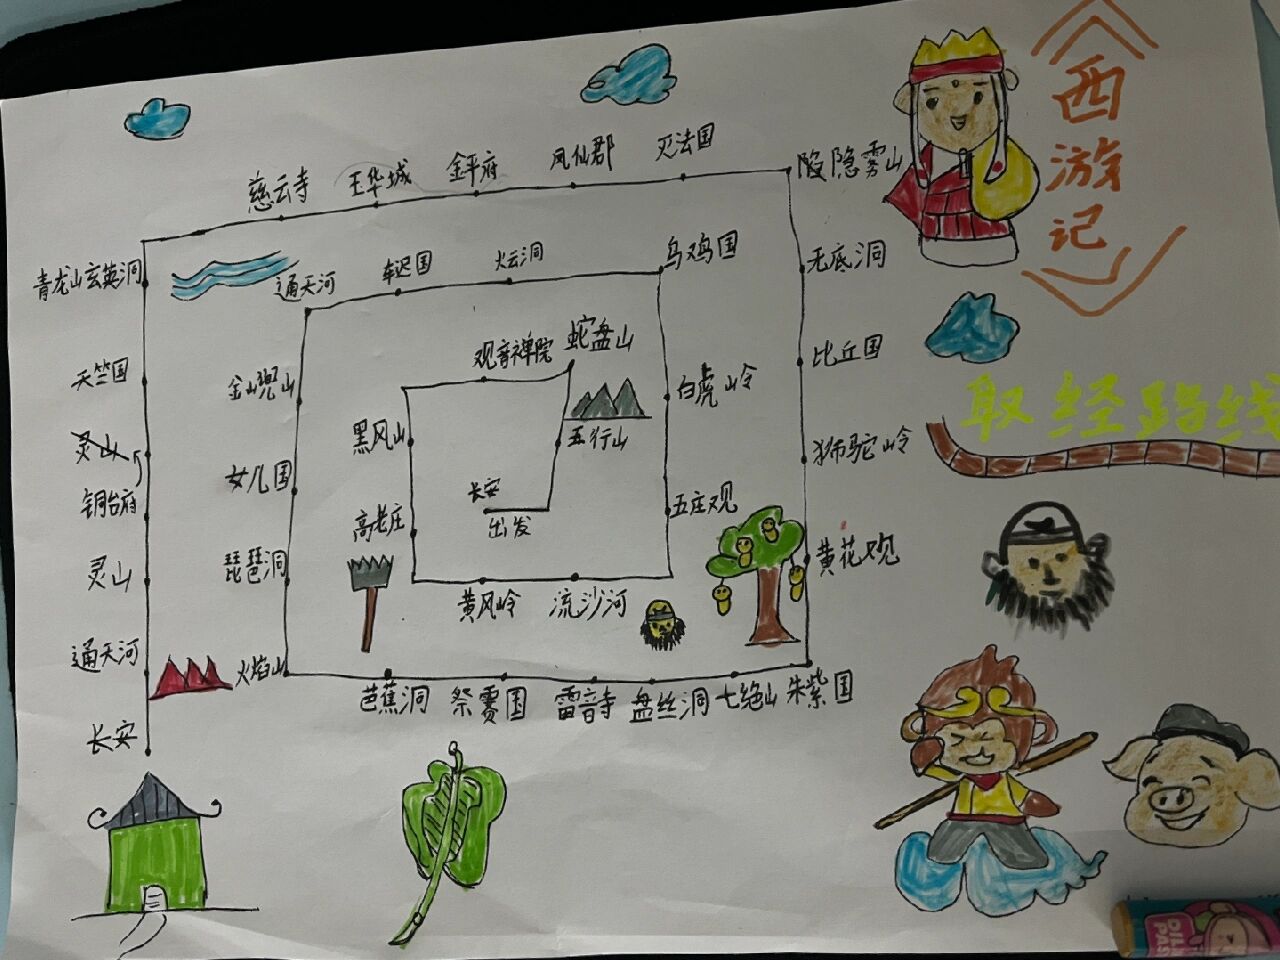 西游记
取经路线
长安
出发
五行山
蛇盘山
观音禅院
黑风山
高老庄
黄风岭
流沙河
五庄观
白虎岭
乌鸡国
火云洞
车迟国
通天河
金山兜山
女儿国
琵琶洞
火焰山
芭蕉洞
祭赛国
雷音寺
盘丝洞
七绝山
朱紫国
黄花观
狮驼岭
比丘国
无底洞
隐雾山
灭法国
凤仙郡
金平府
玉华城
慈云寺
青龙山玄英洞
天竺国
灵山
铜台府
灵山
通天河
长安